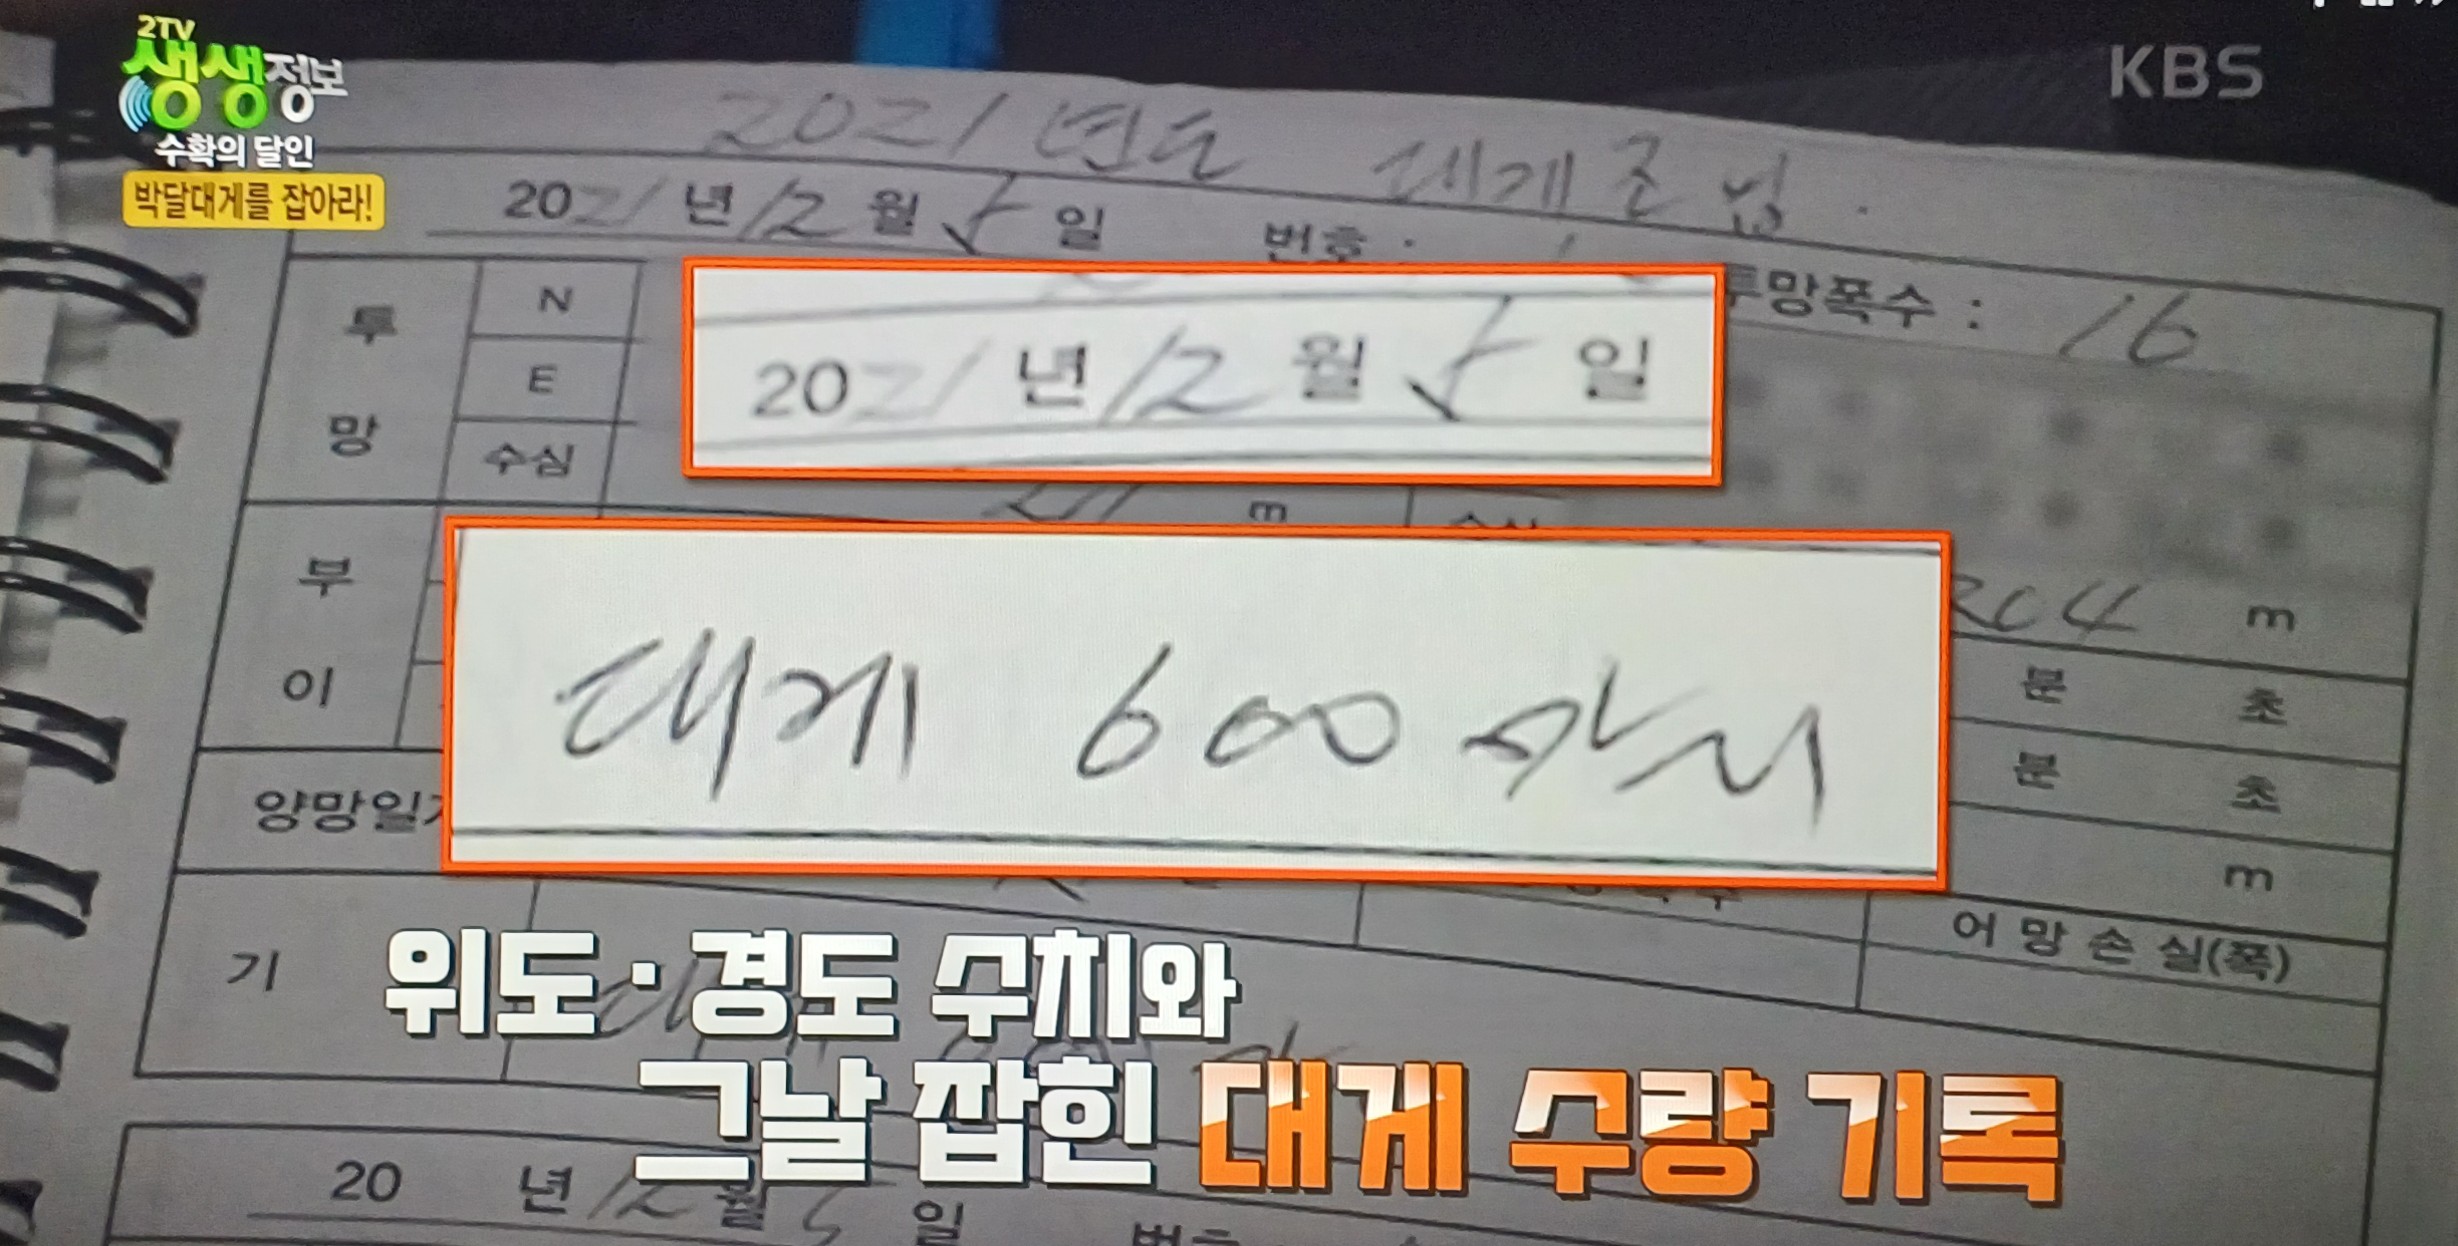 2TV
생생정보
수확의 달인
박달대게를 잡아라!
KBS
2021년도 대게조업.
2021년 12월 5일 번호 :
투망폭수 : 16
투망
N
E
수심
2021년 12월 5일
m
부이
대게 600마리
m
분 초
분 초
양망일
m
어망손실(폭)
기
위도·경도 수치와
그날 잡힌 대게 수량 기록
20 년 12월 일